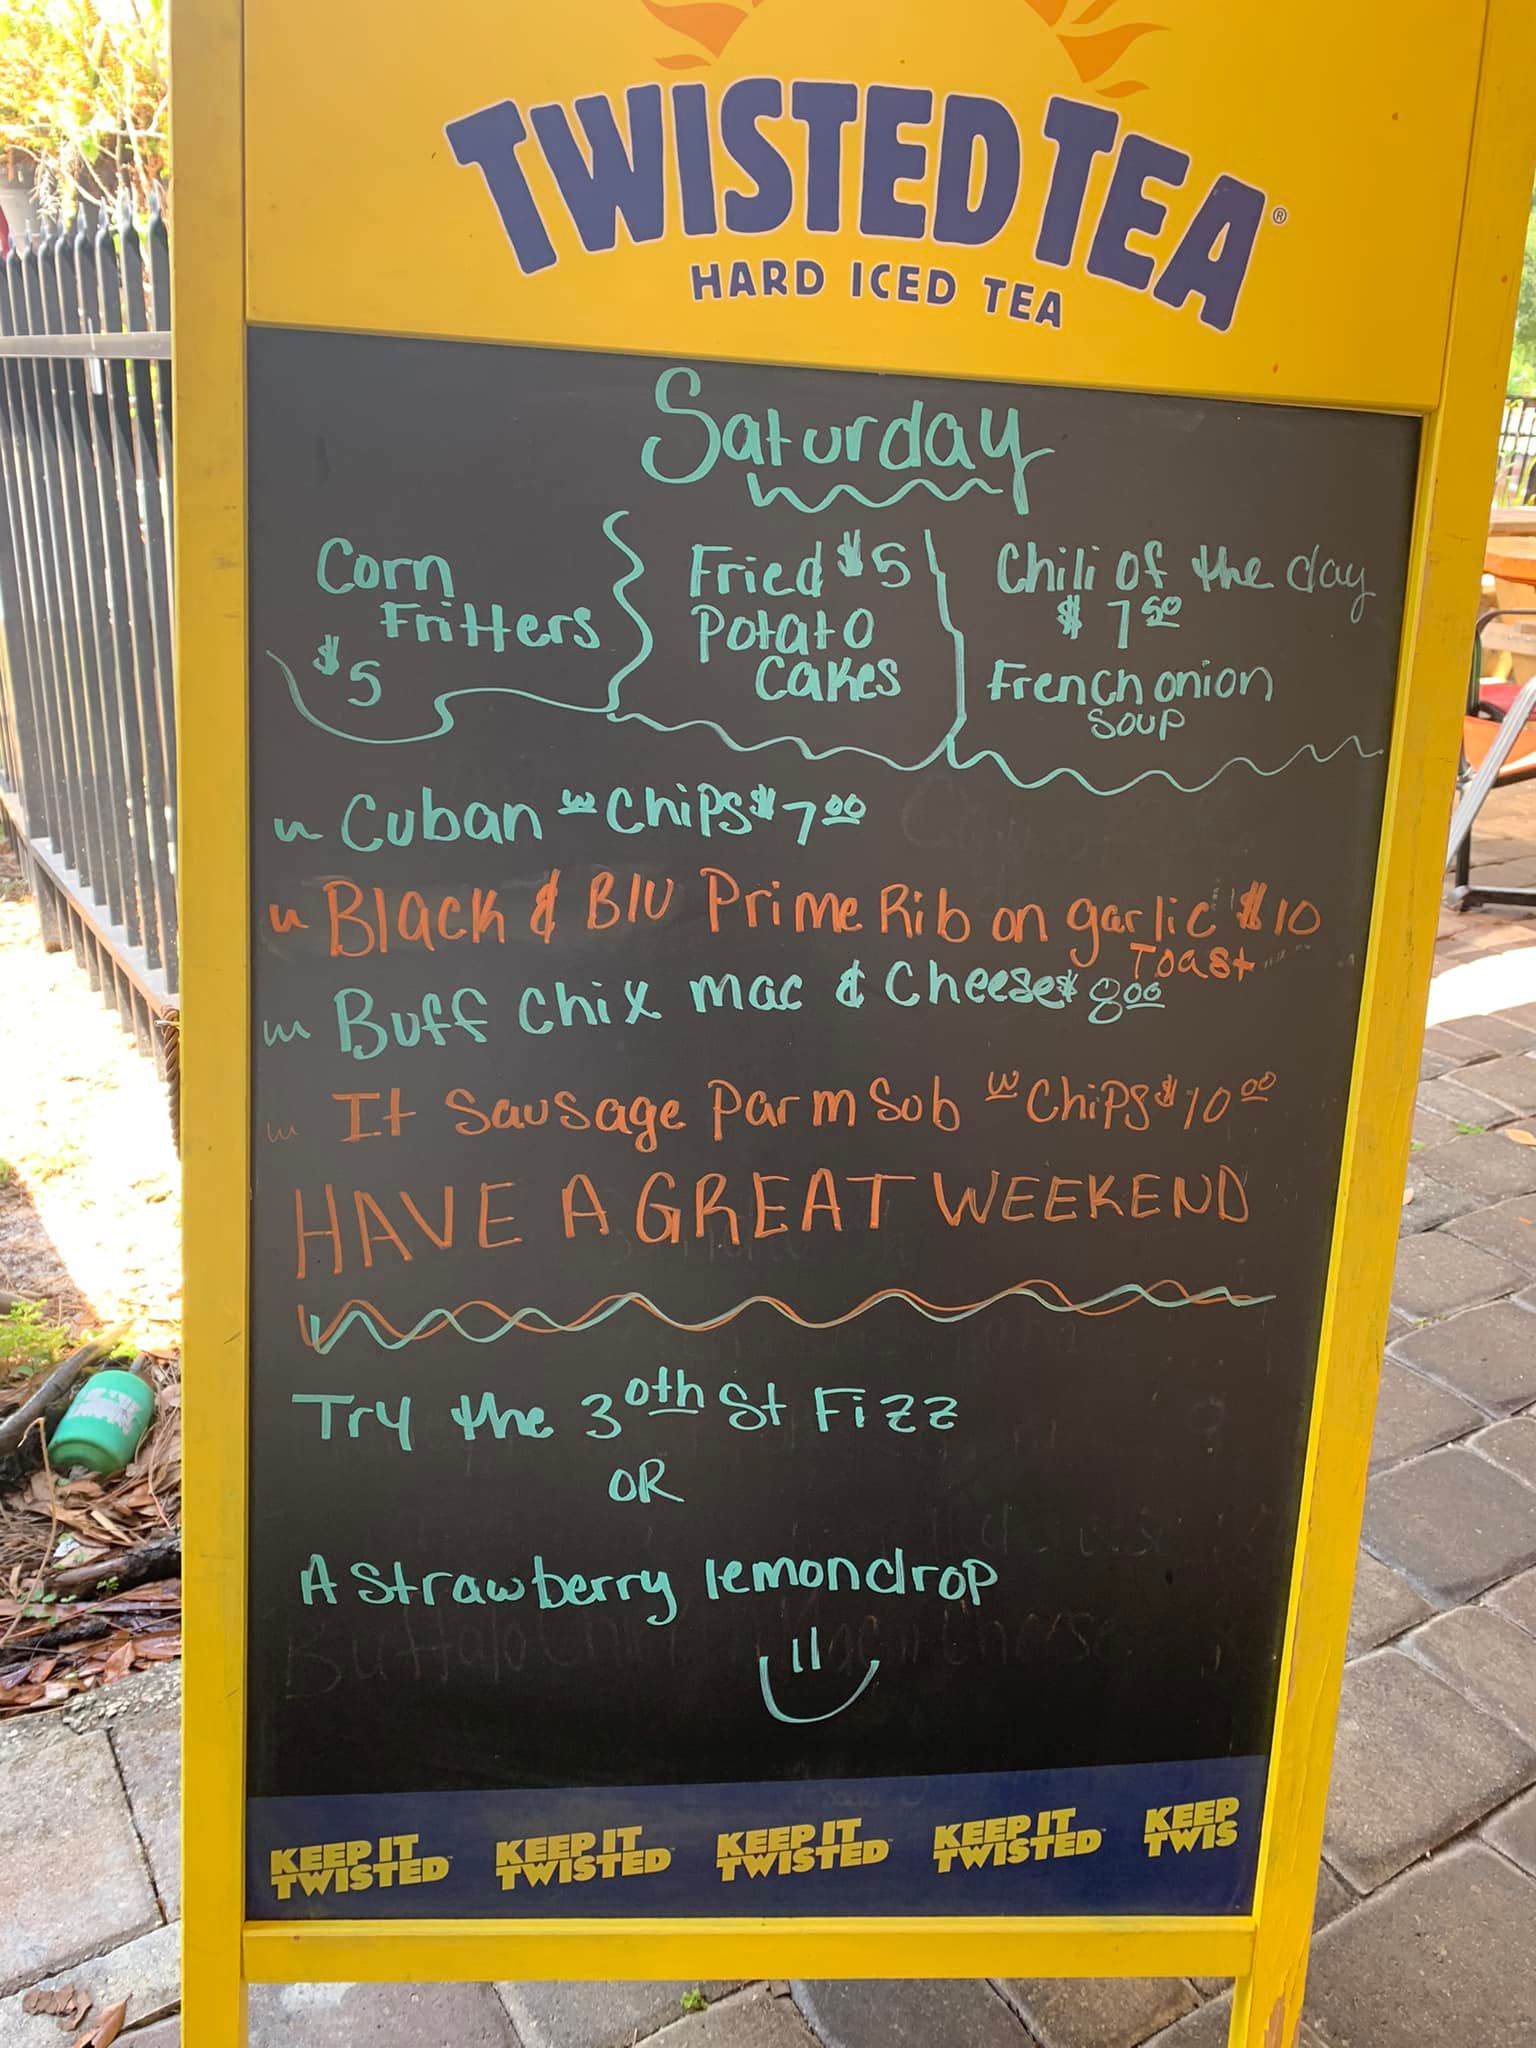 TWISTED TEA®
HARD ICED TEA
Saturday
Corn
Fritters
$5
Fried $5
Potato
Cakes
Chili of the day
$ 7 50
French onion
Soup
Cuban w Chips $ 7 00
Black & Blu Prime Rib on garlic $10
Toast
Buff Chix mac & Cheese $ 8 00
It Sausage Parm Sob w Chips $ 10 00
HAVE A GREAT WEEKEND
Try the 30th St Fizz
OR
A Strawberry lemondrop
KEEP IT TWISTED™ KEEP IT TWISTED™ KEEP IT TWISTED™ KEEP IT TWISTED™ KEEP TWIS